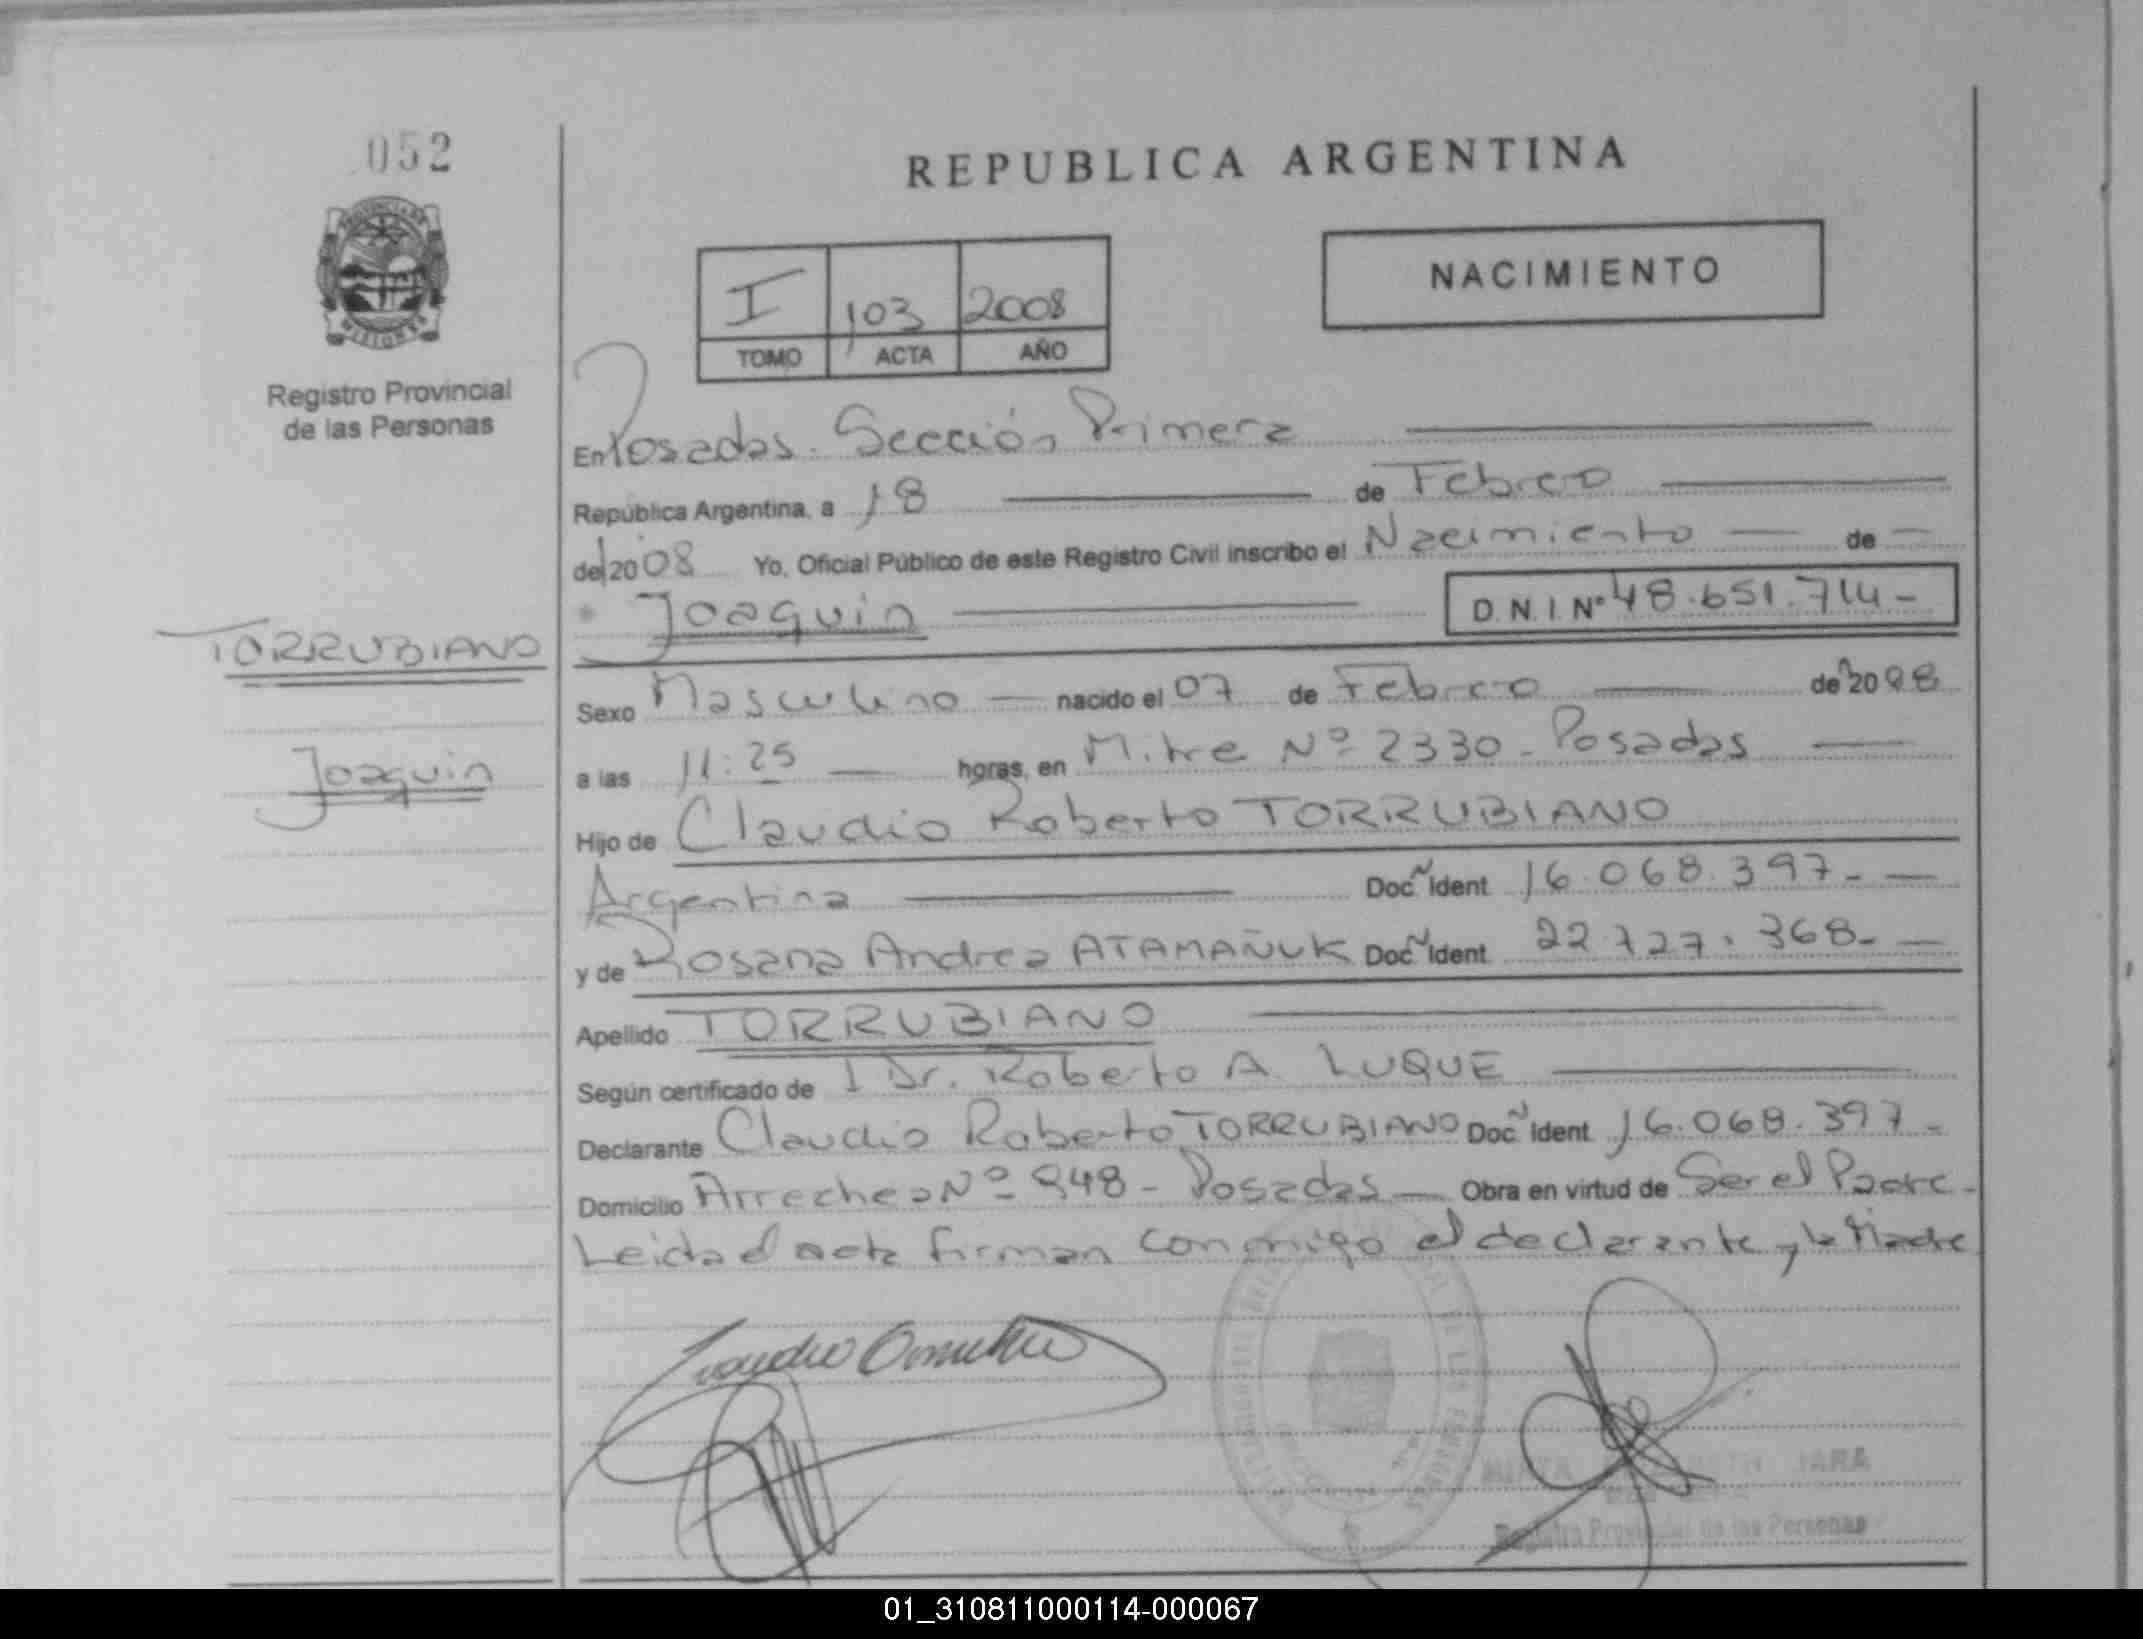 052
REPUBLICA ARGENTINA
NACIMIENTO
I 103 2008
TOMO ACTA AÑO
PROVINCIA DE
MISIONES
Registro Provincial
de las Personas
En Posadas. Sección Primera
República Argentina, a 18 de Febreo
del 2008 Yo, Oficial Público de este Registro Civil inscribo el Nacimiento de
Joaquin D.N.I. Nº 48.651.714-
TORRUBIANO
Joaquin
Sexo Masculino nacido el 07 de Febreo de 2008
a las 11:25 horas, en Mitre Nº 2330 - Posadas
Hijo de Claudio Roberto TORRUBIANO
Argentina Doc. Ident. 16.068.397-
y de Rosana Andrea ATAMAÑUK Doc. Ident. 22.727.368-
Apellido TORRUBIANO
Según certificado de 1 Dr. Roberto A. LUQUE
Declarante Claudio Roberto TORRUBIANO Doc. Ident. 16.068.397-
Domicilio Arrechea Nº 948 - Posadas Obra en virtud de Ser el Padre -
Leida el acta firman conmigo el declarante y la Madre
JARA
Registro Provincial de las Personas
01_310811000114-000067